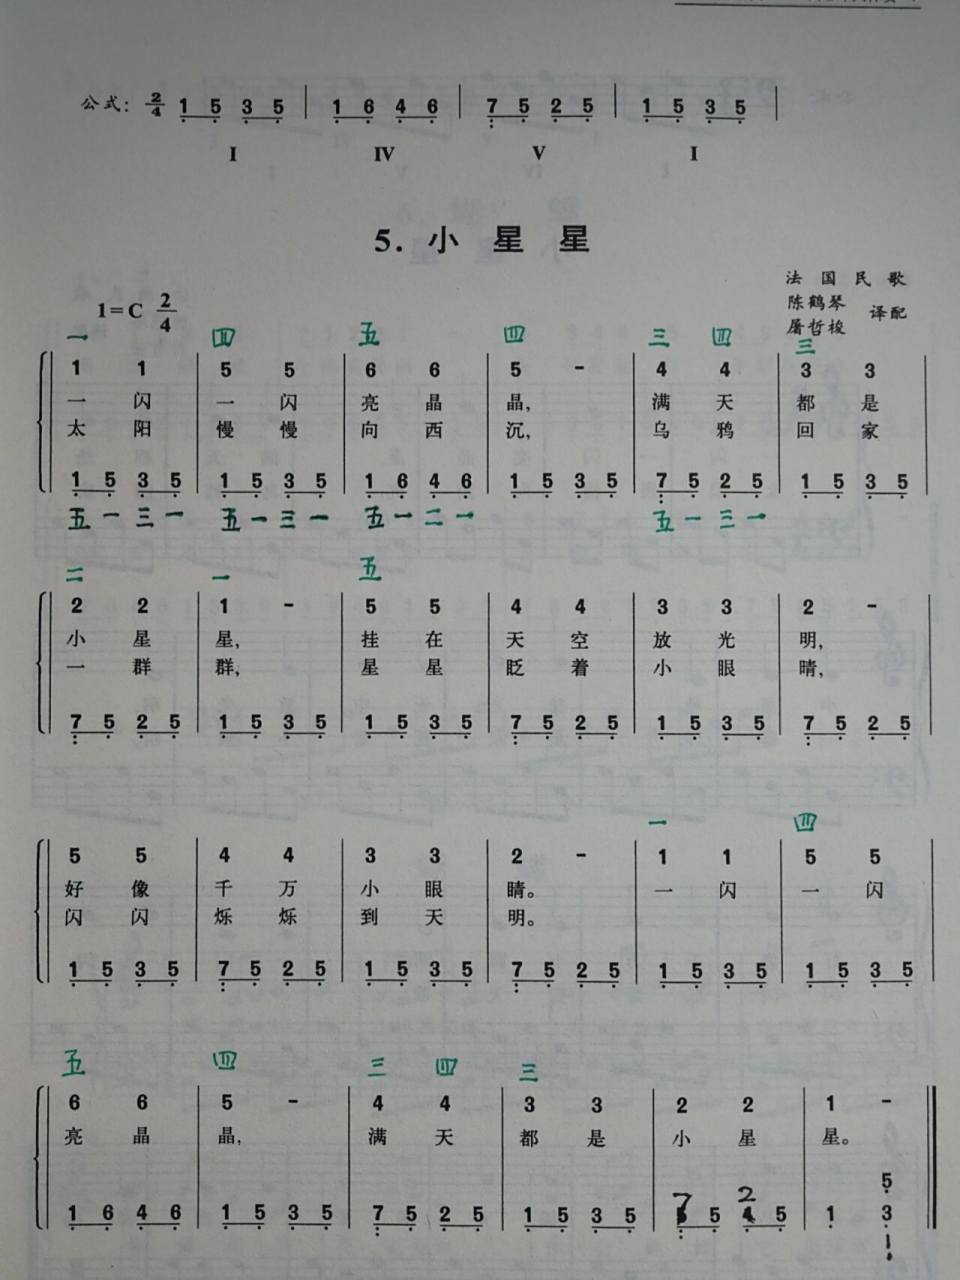 公式: 2/4 1 5 3 5 | 1 6 4 6 | 7 5 2 5 | 1 5 3 5 |
I IV V I
5. 小 星 星
法 国 民 歌
1=C 2/4
陈鹤琴
屠哲梭 译配
一 四 五 四 三 四 三
1 1 | 5 5 | 6 6 | 5 - | 4 4 | 3 3 |
一 闪 一 闪 亮 晶 晶, 满 天 都 是
太 阳 慢 慢 向 西 沉, 乌 鸦 回 家
1 5 3 5 | 1 5 3 5 | 1 6 4 6 | 1 5 3 5 | 7 5 2 5 | 1 5 3 5 |
五 一 三 一 五 一 三 一 五 一 二 一 五 一 三 一
二 一 五
2 2 | 1 - | 5 5 | 4 4 | 3 3 | 2 - |
小 星 星, 挂 在 天 空 放 光 明,
一 群 群, 星 星 眨 着 小 眼 晴,
7 5 2 5 | 1 5 3 5 | 1 5 3 5 | 7 5 2 5 | 1 5 3 5 | 7 5 2 5 |
一 四
5 5 | 4 4 | 3 3 | 2 - | 1 1 | 5 5 |
好 像 千 万 小 眼 睛。 一 闪 一 闪
闪 闪 烁 烁 到 天 明。
1 5 3 5 | 7 5 2 5 | 1 5 3 5 | 7 5 2 5 | 1 5 3 5 | 1 5 3 5 |
五 四 三 四 三
6 6 | 5 - | 4 4 | 3 3 | 2 2 | 1 - ‖
亮 晶 晶, 满 天 都 是 小 星 星。
7 2 5
1 6 4 6 | 1 5 3 5 | 7 5 2 5 | 1 5 3 5 | 5 5 | 1 3 ‖
1